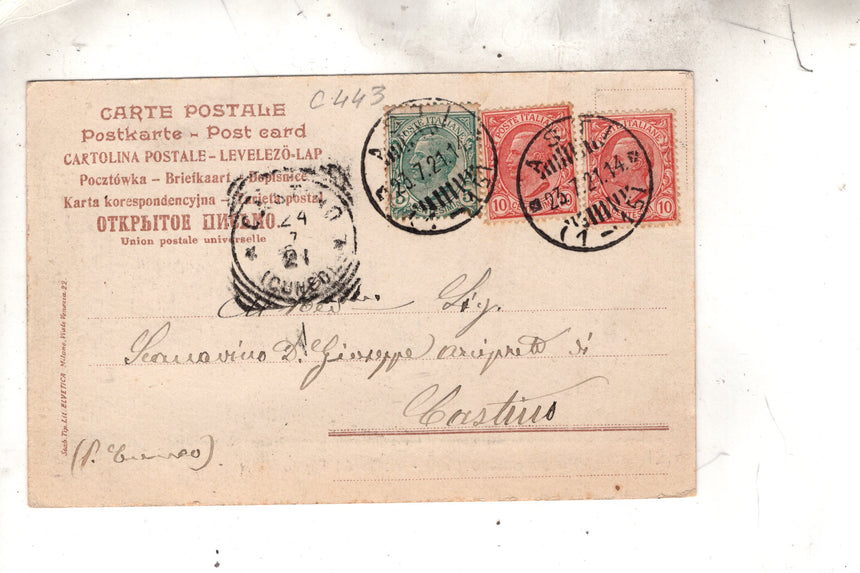 C443
CARTE POSTALE
Postkarte - Post card
CARTOLINA POSTALE - LEVELEZÖ-LAP
Pocztówka - Briefkaart - Dopisnice
Karta korespondencyjna - Tarjeta postal
ОТКРЫТОЕ ПИСЬМО.
Union postale universelle
POSTE ITALIANE
5
POSTE ITALIANE
10 10
ITALIANE
10
23.7.21.14
23.7.21.14
24
7
21
(CUNEO)
Sig.
D. Giuseppe arciprete di
Castino
(P. Cuneo)
Socb. Tip. Lit. ELVETICA Milano, Viale Venezia 22.